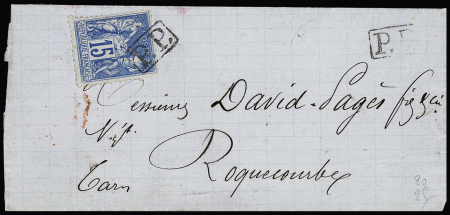 15
P.P.
P.P.
Messieurs David-Pagès fils & Cie
Négt
Roquecourbe
Tarn
90
25